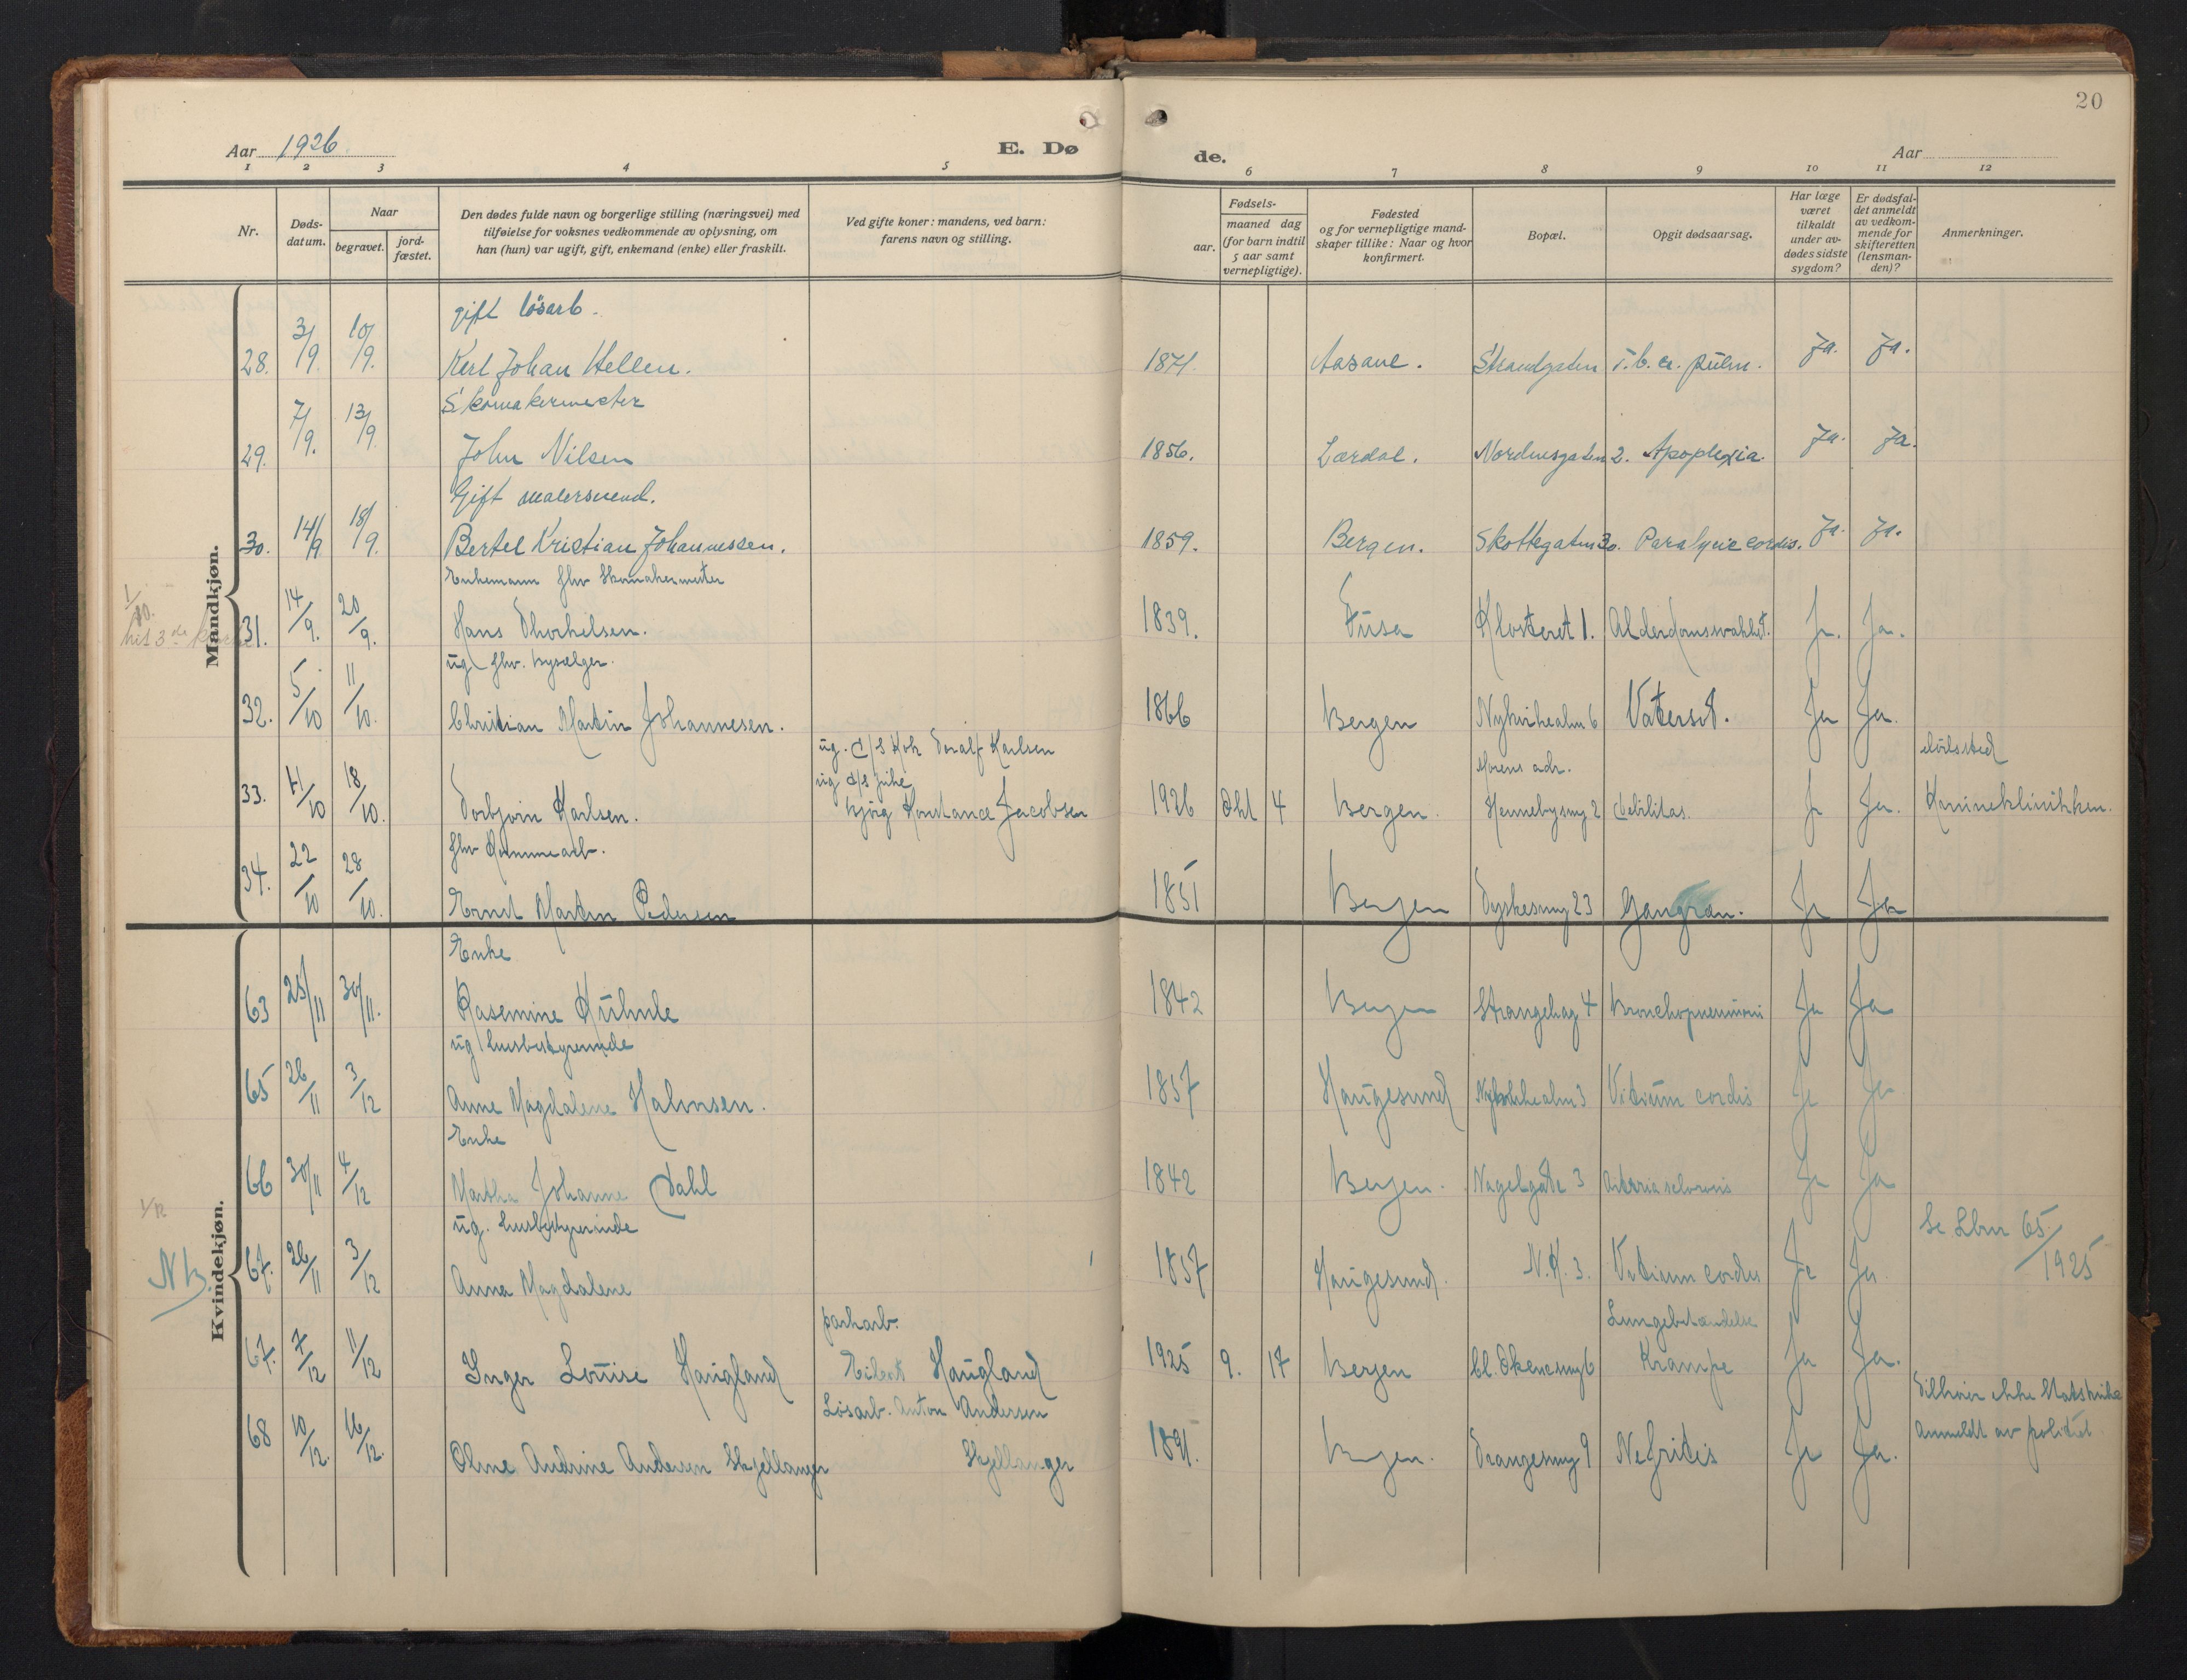 20
Aar 1926.
E. Dø
de.
Aar
1 2 3 4 5 6 7 8 9 10 11 12
Nr.
Døds-
datum.
Naar
begravet.
jord-
fæstet.
Den dødes fulde navn og borgerlige stilling (næringsvei) med
tilføielse for voksnes vedkommende av oplysning, om
han (hun) var ugift, gift, enkemand (enke) eller fraskilt.
Ved gifte koner: mandens, ved barn:
farens navn og stilling.
aar.
Fødsels-
maaned dag
(for barn indtil
5 aar samt
vernepligtige).
Fødested
og for vernepligtige mand-
skaper tillike: Naar og hvor
konfirmert.
Bopæl.
Opgit dødsaarsag.
Har læge
været
tilkaldt
under av-
dødes sidste
sygdom?
Er dødsfal-
det anmeldt
av vedkom-
mende for
skifteretten
(lensman-
den)?
Anmerkninger.
Mandkjøn.
gift løsarb.
28. 3/9 10/9. Karl Johan Hellen. 1871. Aasane. Strandgaten T.b.c. pulm. Ja. Ja.
Skomakermester
29. 7/9. 13/9. John Nilsen 1856. Lærdal. Nordnesgaten 2. Apoplexia. Ja. Ja.
Gift malersvend.
30. 14/9 18/9. Bertel Kristian Johannessen. 1859. Bergen. Skottegaten 30. Paralysie cordis. Ja. Ja.
Enkemann fhv Skomakermester
31. 14/9. 20/9. Hans Thorkelsen. 1839. Fusa Klosteret 1. Alderdomssvakhet. Ja. Ja.
1/10.
ug fhv. bysælger.
32. 5/10 11/10. Christian Martin Johannesen. 1866 Bergen Nykirkealm 6 Vatersot. Ja Ja.
ug. d/s Kok Toralf Karlsen
ug d/s pike
Morens adr.
dødssted
33. 11/10 18/10. Torbjørn Karlsen. Bjørg Konstance Jacobsen 1926 Okt 4 Bergen. Hennebysmg 2 Debilitas. Ja Ja. Kvinneklinikken.
fhv Kommunearb.
34. 22/10 28/10. Ernst Martin Pedersen 1851 Bergen Tyskesmug 23 Gangræn. Ja Ja
Kvindekjøn.
Enke
63 25/11 30/11. Rasemine Kühnle 1842 Bergen Strangehag 4 Bronchopneumoni Ja Ja
ug husbestyrerinde
65 26/11 3/12 Anne Magdalene Halvorsen. 1857 Haugesund Nykirkealm 3 Vitium cordis Ja Ja
Enke
66 30/11 4/12 Martha Johanne Dahl 1842 Bergen. Nagelgate 3 Ja Ja
1/12
ug. husbestyrerinde
Se Lbnr 65/1925
NB. 67. 26/11 3/12 Anna Magdalene 1857 Haugesund. N.K. 3. Vitium cordis Ja Ja.
parkarb.
Lungebetændelse
67. 7/12 11/12 Inger Louise Haugland Haugland 1925 9. 17 Bergen Krampe Ja Ja.
Løsarb. Anton Andersen
Tilhører ikke Statskirke
68 10/12. 16/12. Oline Andrine Andersen Skjellanger Skjellanger 1891. Bergen. Trangesmug 9 Nefritis Ja Ja. Anmeldt av politiet.